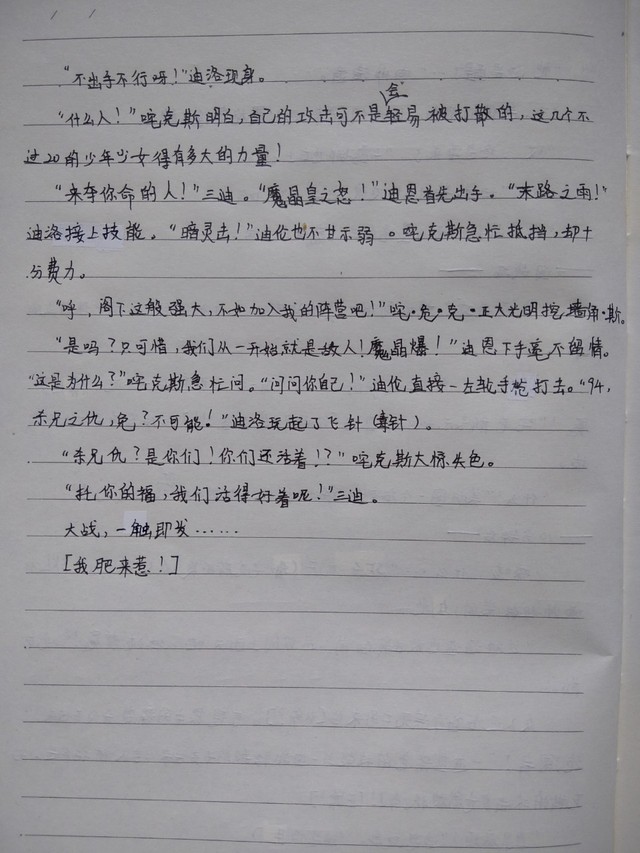 “不出手不行呀！”迪洛现身。
“什么人！”咤克斯明白，自己的攻击可不是会轻易被打散的，这几个不
过20的少年少女得有多大的力量！
“来夺你命的人！”三迪。“魔晶皇之怒！”迪恩首先出手。“末路之雨！”
迪洛接上技能。“暗灵击！”迪伦也不甘示弱。咤克斯急忙抵挡，却十
分费力。
“呼，阁下这般强大，不如加入我的阵营吧！”咤·危·克·正大光明挖墙角·斯。
“是吗？只可惜，我们从一开始就是敌人！魔晶爆！”迪恩下手毫不留情。
“这是为什么？”咤克斯急忙问。“问问你自己！”迪伦直接一左轮手枪打去。“94，
杀兄之仇，免？不可能！”迪洛玩起了飞针（毒针）。
“杀兄仇？是你们！你们还活着！？”咤克斯大惊失色。
“托你的福，我们活得好着呢！”三迪。
大战，一触即发……
[我肥来惹！]